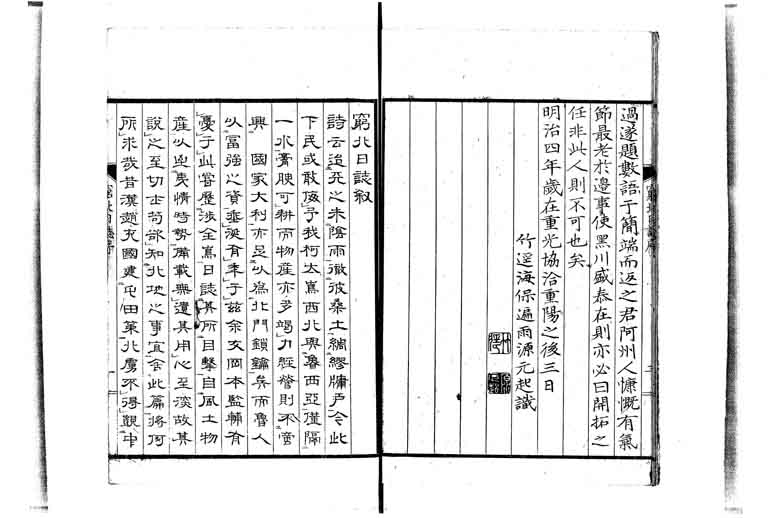 過遂題數語于簡端而返之君阿州人慷慨有氣
節最老於邊事使黑川盛泰在則亦必曰開拓之
任非此人則不可也矣
明治四年歲在重光協洽重陽之後三日
竹逕海保遍雨源元起識
窮北日誌叙
詩云迨天之未陰雨徹彼桑土綢繆牖戶今此
下民或敢侮予我柯太島西北與魯西亞僅隔
一水膏腴可耕而物產亦多竭力經營則不啻
興國家大利亦足以為北門鎖鑰矣而魯人
以富強之資垂涎有年于茲余友岡本監輔有
憂于此嘗歷涉全島日誌其所目擊自風土物
產以迨夷情時勢備載無遺其用心至深故其
說之至切士苟欲知北地之事宜舍此篇將何
所求哉昔漢趙充國建屯田策北虜不得覬中